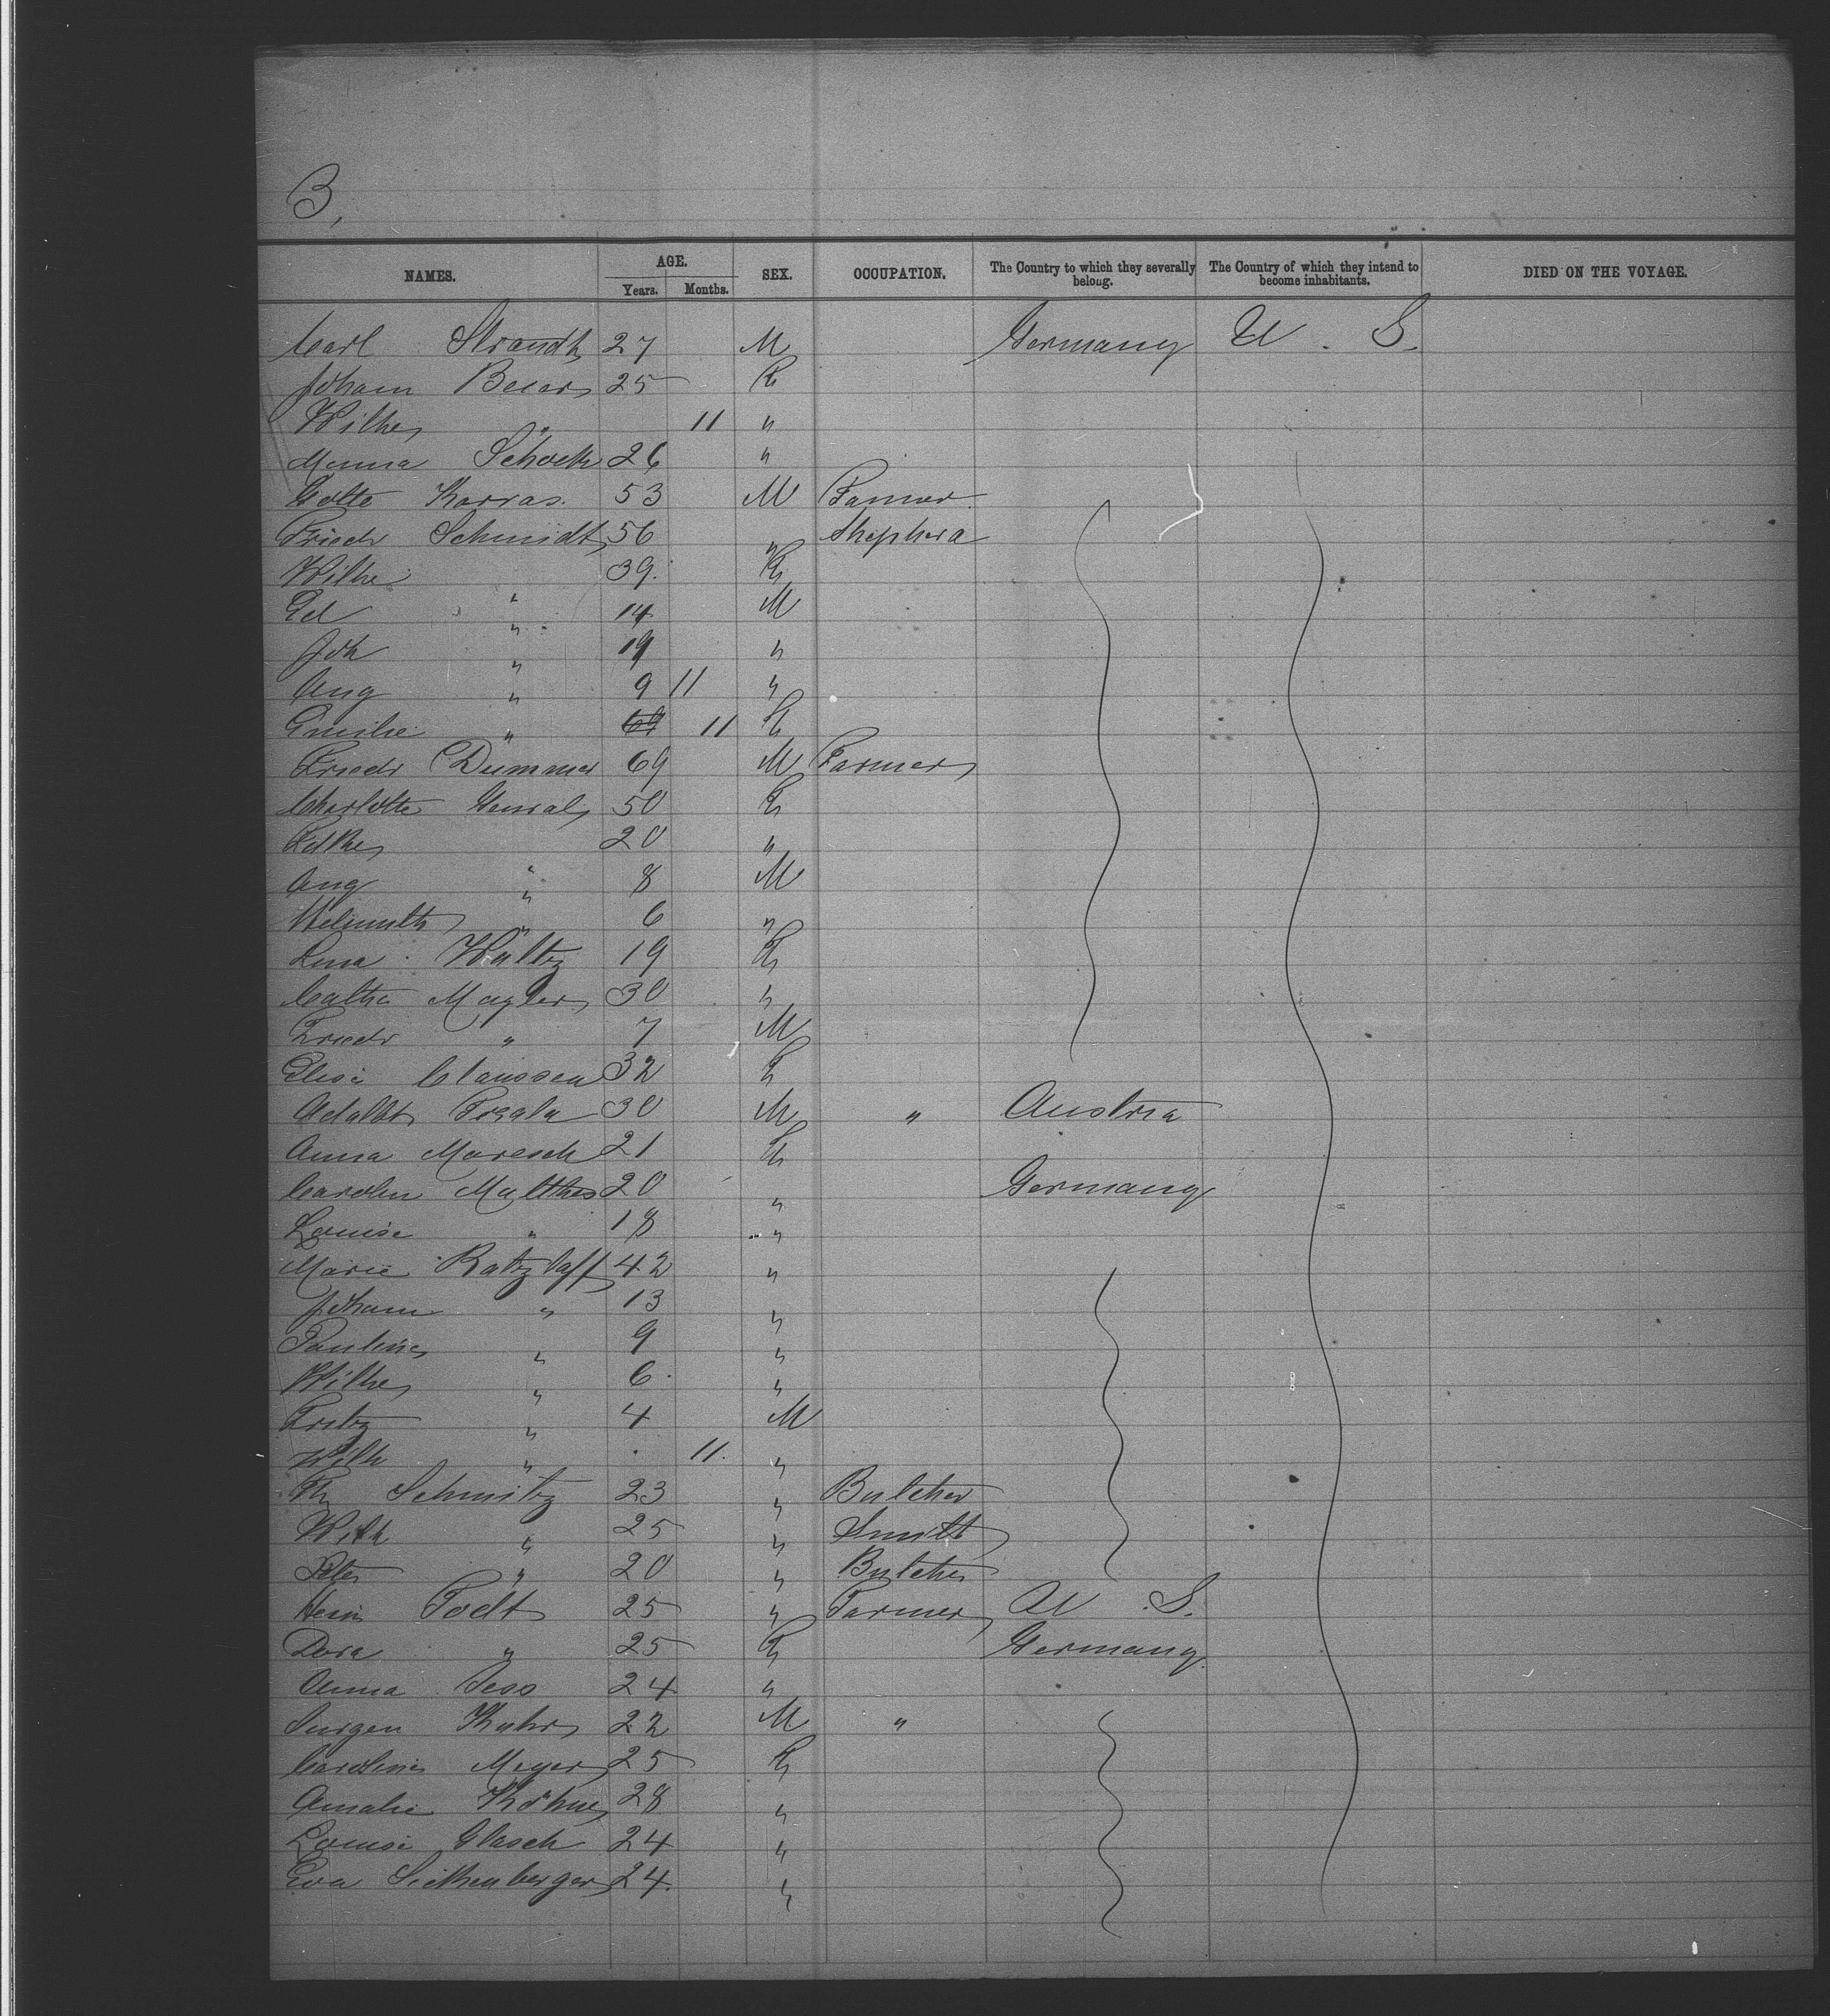 3,
NAMES. AGE. Years. Months. SEX. OCCUPATION. The Country to which they severally belong. The Country of which they intend to become inhabitants. DIED ON THE VOYAGE.
Carl Strandt 27 M Germany U. S.
Joham 25 F
Wilhe " 11 "
Minna Schoek 26 "
Karras. 53 M Farmer
Friedr Schmidt 56 " Shepherd
Wilhe " 39. F
Ed " 14 M
Joh " 19 "
Aug " 9 11 "
Emilie " 11 F
Friedr Dummer 69 M Farmer
Charlotte 50 F
20 "
Aug " 8 M
Helmuth " 6 "
Lina Waltz 19 F
Cathe Magler 30 "
Friedr " 7 M
Elise Claussen 32 F
Adalbt 30 M " Austria
Anna Maresch 21 F
Carolin Matthes 20 " Germany
Louise " 18 "
Marie Ratzlaff 42 "
Joham " 13 "
Pauline " 9 "
Wilhe " 6. "
Fritz " 4 M
Wilh " 11. "
Fr Schmitz 23 " Butcher
Wilh " 25 " Smith
Peter " 20 " Butcher
Hein Todt 25 " Farmer U S.
Dora " 25 F Germany.
Anna Jess 24 "
Jurgen Kuhr 22 M "
Caroline Meyer 25 F
Amalie Köhne 28 "
Louise Glasch 24 "
Eva Sickenberger 24. "